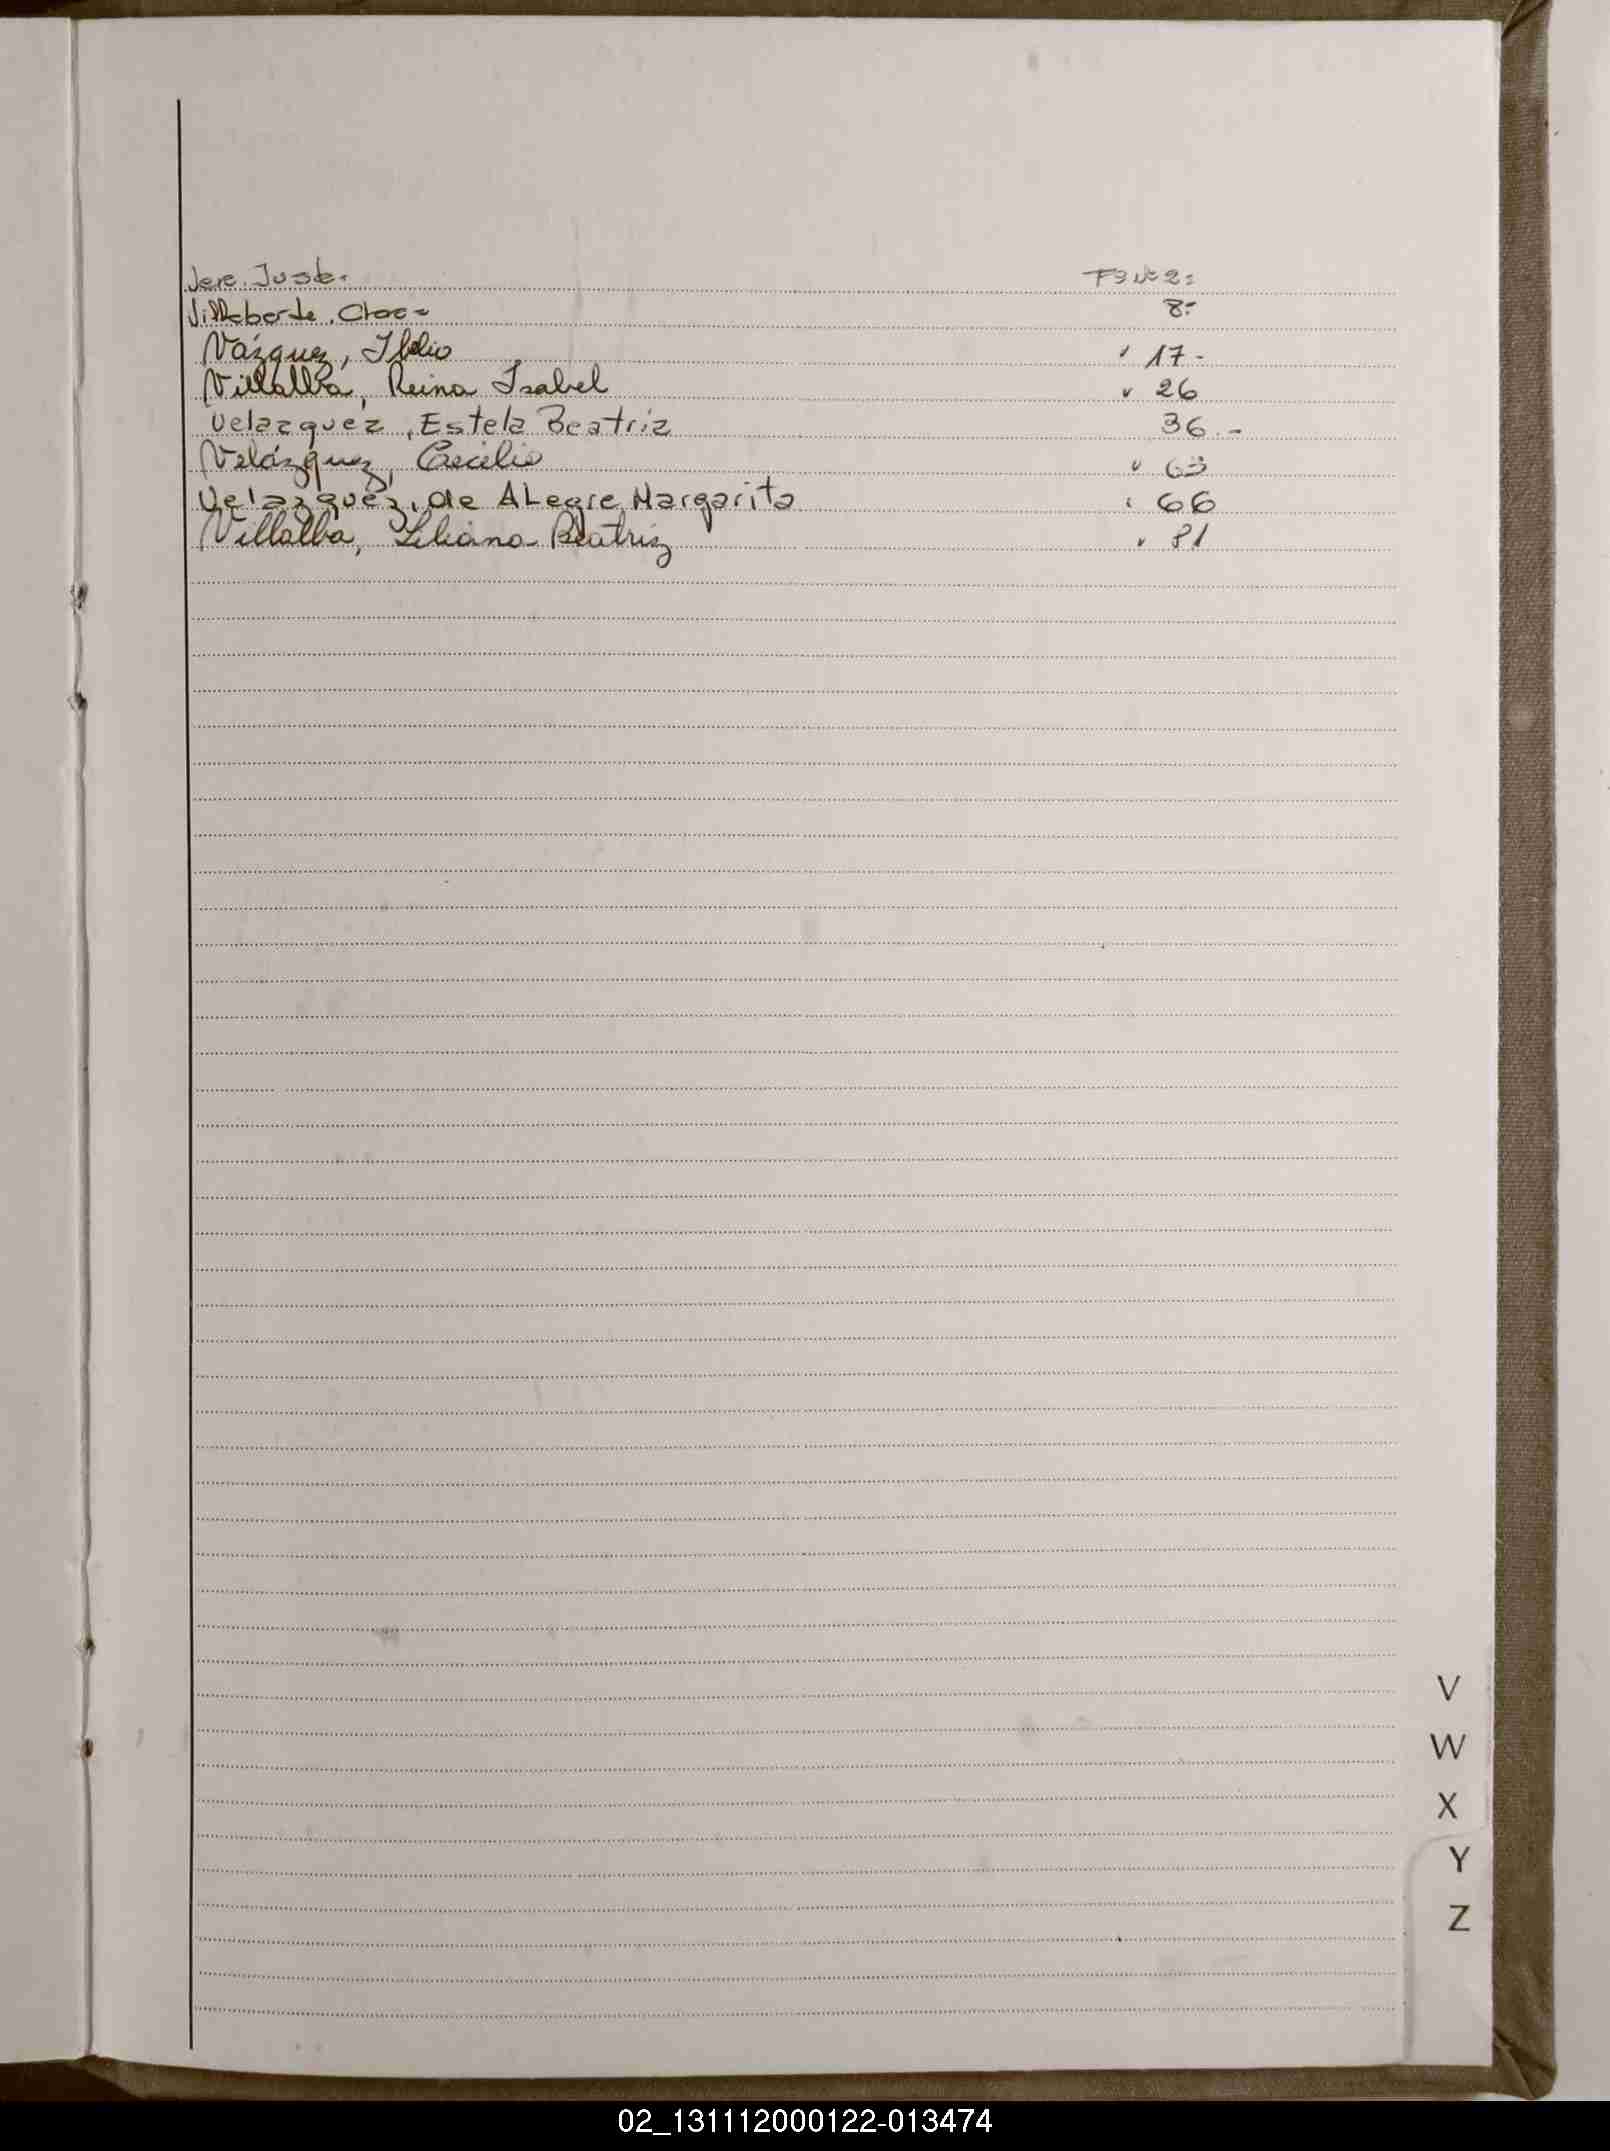 Vera. Justo.- Fº Nº 2=
Villaborda. Clara= 8=
Vázquez, Ilidio " 17-
Villalba, Reina Isabel " 26
Velazquez, Estela Beatriz 36.-
Velázquez, Cecilio " 63
Velazquez, de Alegre Margarita " 66
Villalba, Liliana Beatriz " 81
V
W
X
Y
Z
02_131112000122-013474